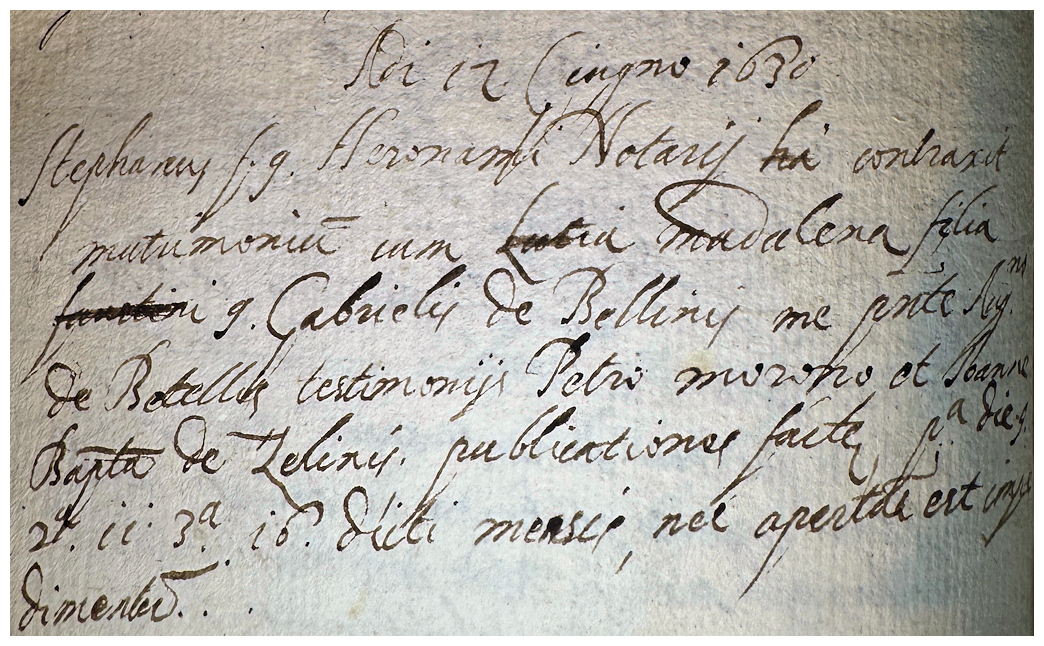 Adi 12 Giugno 1630
Stephanus f. q. Heronimi Notarij ha contraxit
matrimoniū cum Lutia Madalena filia
faustini q. Gabrielis de Bellinis me pnte Aug.no
de Betellis testimonijs Petro morono et Joanne
Bapta de Zelinis. publicationes facte pa die 9.
2a. ii. 3.a 16. dicti mensis, nec apertū est imp
dimentū. . .